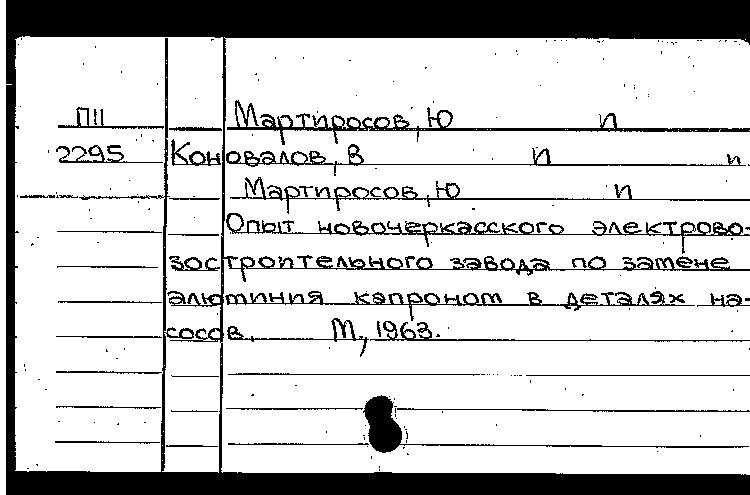 П11 Мартиросов, Ю п
2295 Коновалов, В п п
Мартиросов, Ю п
Опыт новочеркасского электрово-
зостроительного завода по замене
алюминия капроном в деталях на-
сосов. М., 1963.